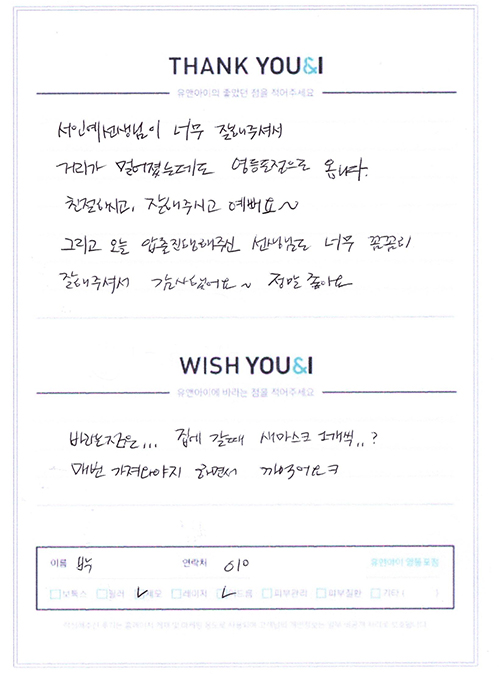 THANK YOU&I
유앤아이의 좋았던 점을 적어주세요
서인예선생님이 너무 잘해주셔서
거리가 멀어졌는데도 영등포점으로 옵니다.
친절하시고, 잘해주시고 예뻐요~
그리고 오늘 압출진행해주신 선생님도 너무 꼼꼼히
잘해주셔서 감사했어요~ 정말 좋아요
WISH YOU&I
유앤아이에 바라는 점을 적어주세요
바라는점은... 집에 갈때 새마스크 1개씩..?
매번 가져와야지 하면서 까먹어요ㅋ
이름 연락처 010 유앤아이 영등포점
보톡스 필러 제모 레이저 여드름 피부관리 피부질환 기타 ( )